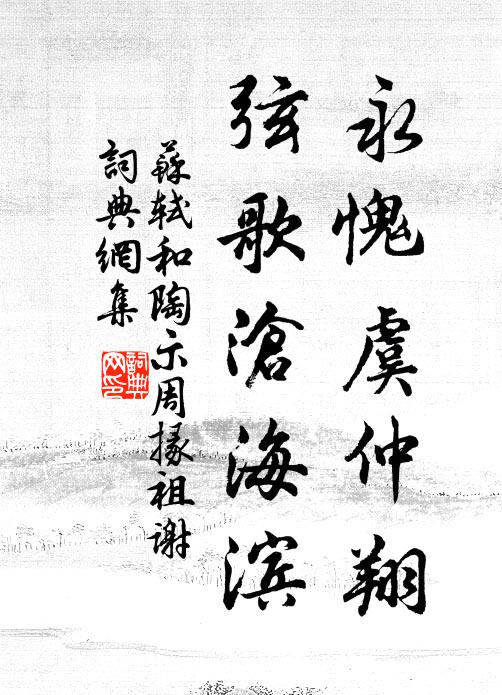 永愧虞仲翔
弦歌滄海滨
蘇軾和陶示周掾祖謝
詞典網集
詞典网印